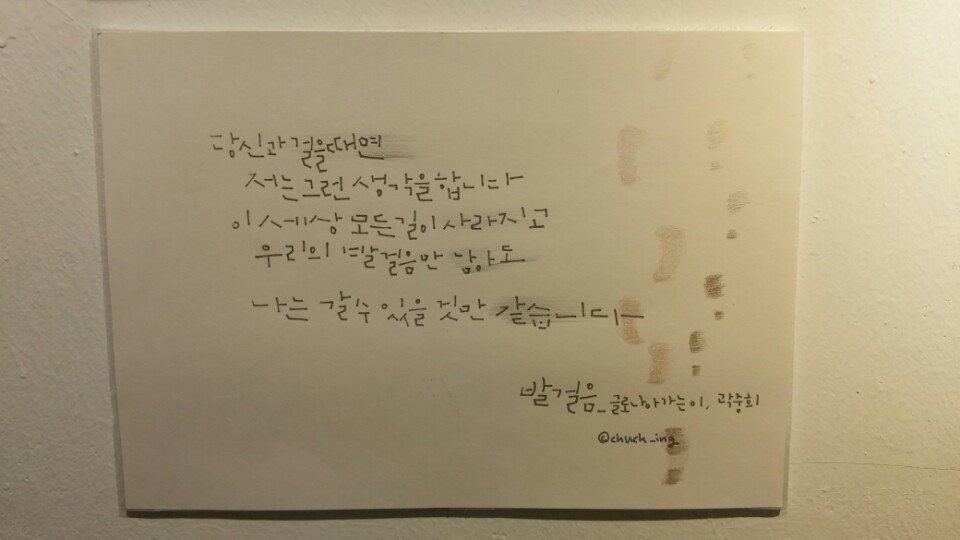 당신과 걸을때면
저는 그런 생각을 합니다
이 세상 모든길이 사라지고
우리의 발걸음만 남아도
나는 갈수 있을 것만 같습니다
발걸음_글로나아가는이, 곽중희
@chuch_ing